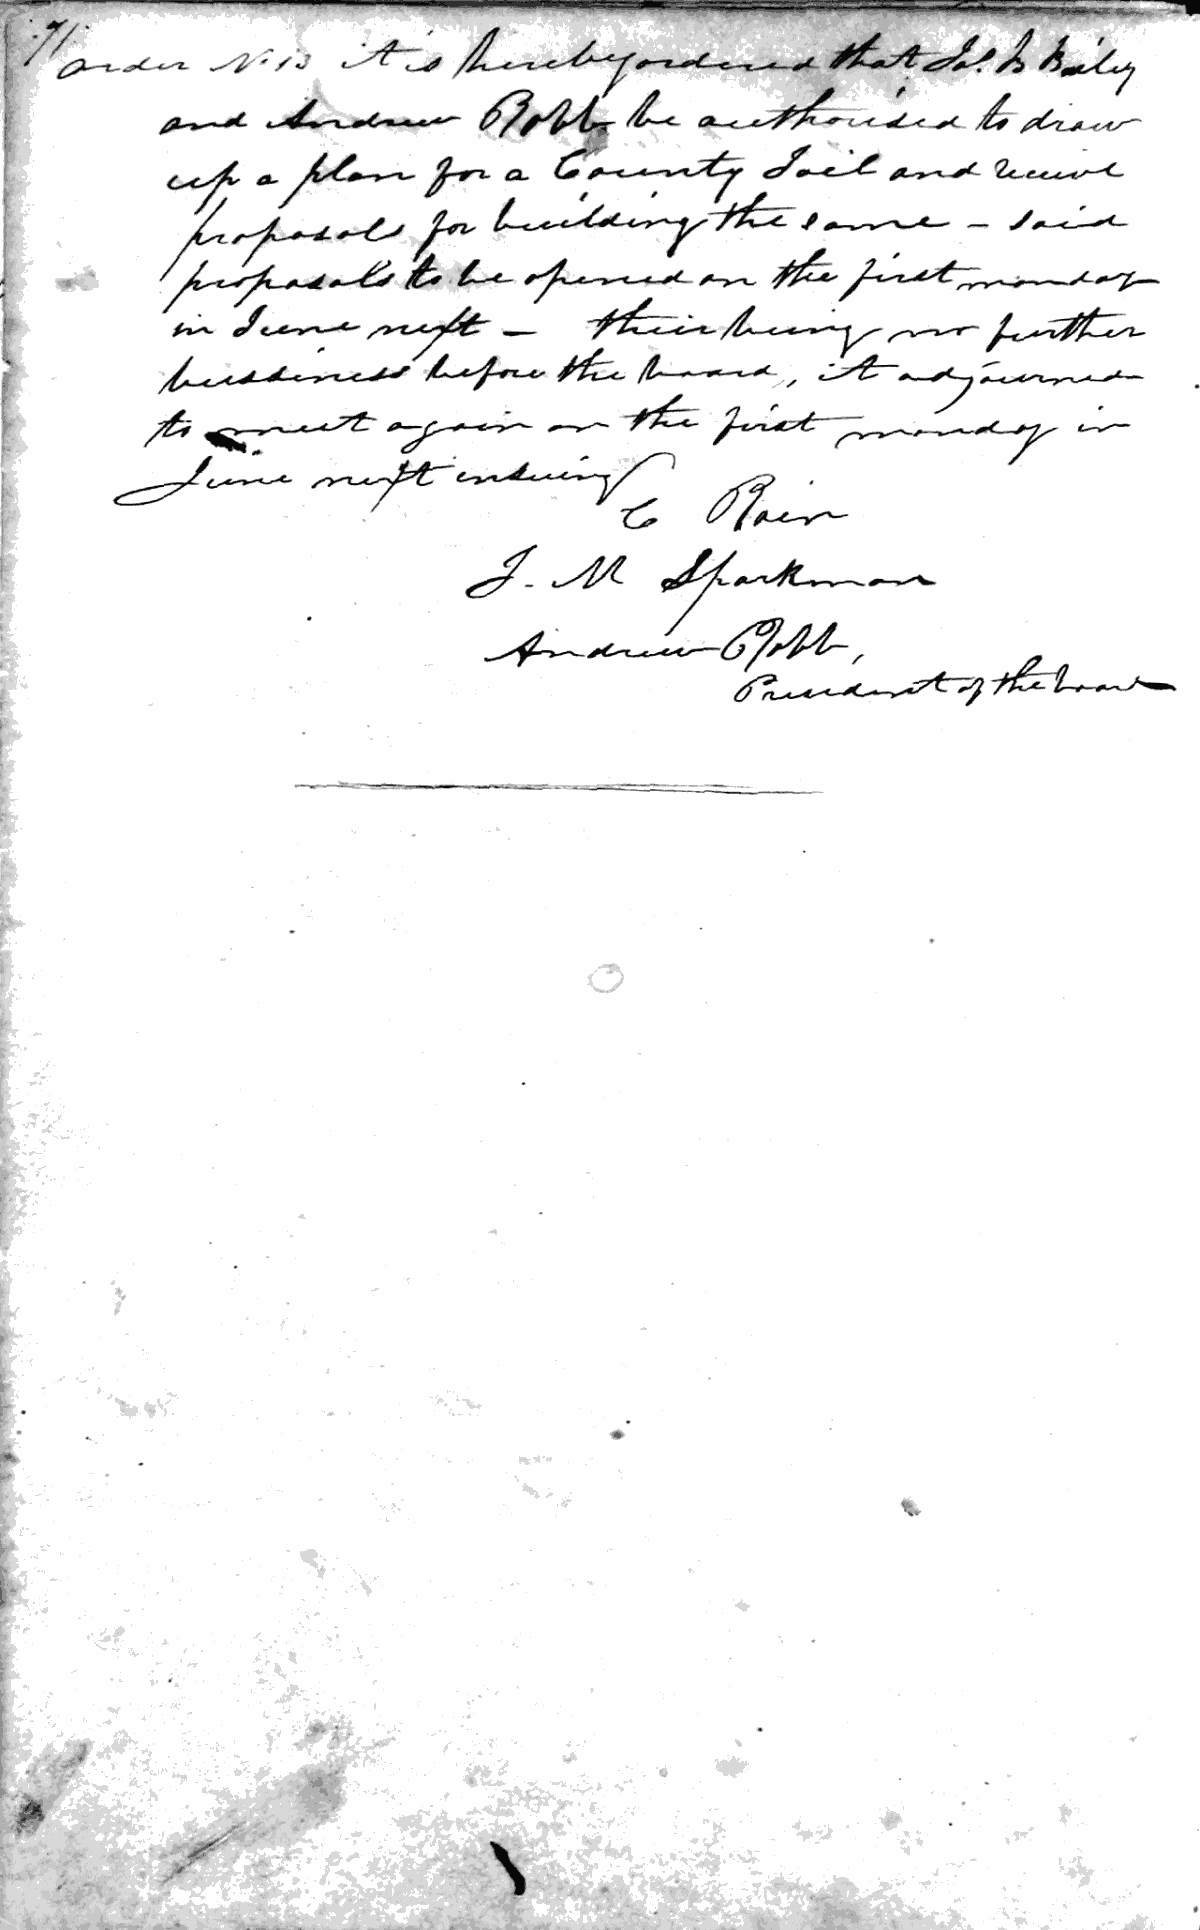 71
order No 13 it is hereby ordered that Jas. B Bailey
and Andrew Robb be authorised to draw
up a plan for a County Jail and receive
proposals for building the same - said
proposals to be opened on the first monday
in June next - their being no further
bussiness before the board, it adjourned
to meet again on the first monday in
June next ensuing
C Rain
J. M Sparkman
Andrew Robb,
President of the board